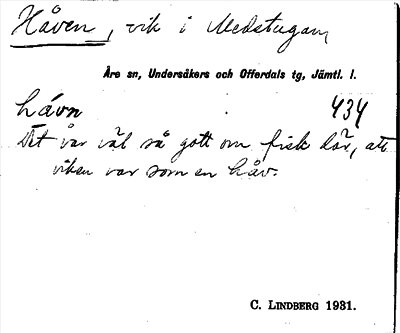 Håven, vik i Medstugan,
Åre sn, Undersåkers och Offerdals tg, Jämtl. l.
håvn 434
Det var väl så gott om fisk där, att
viken var som en håv.
C. LINDBERG 1931.